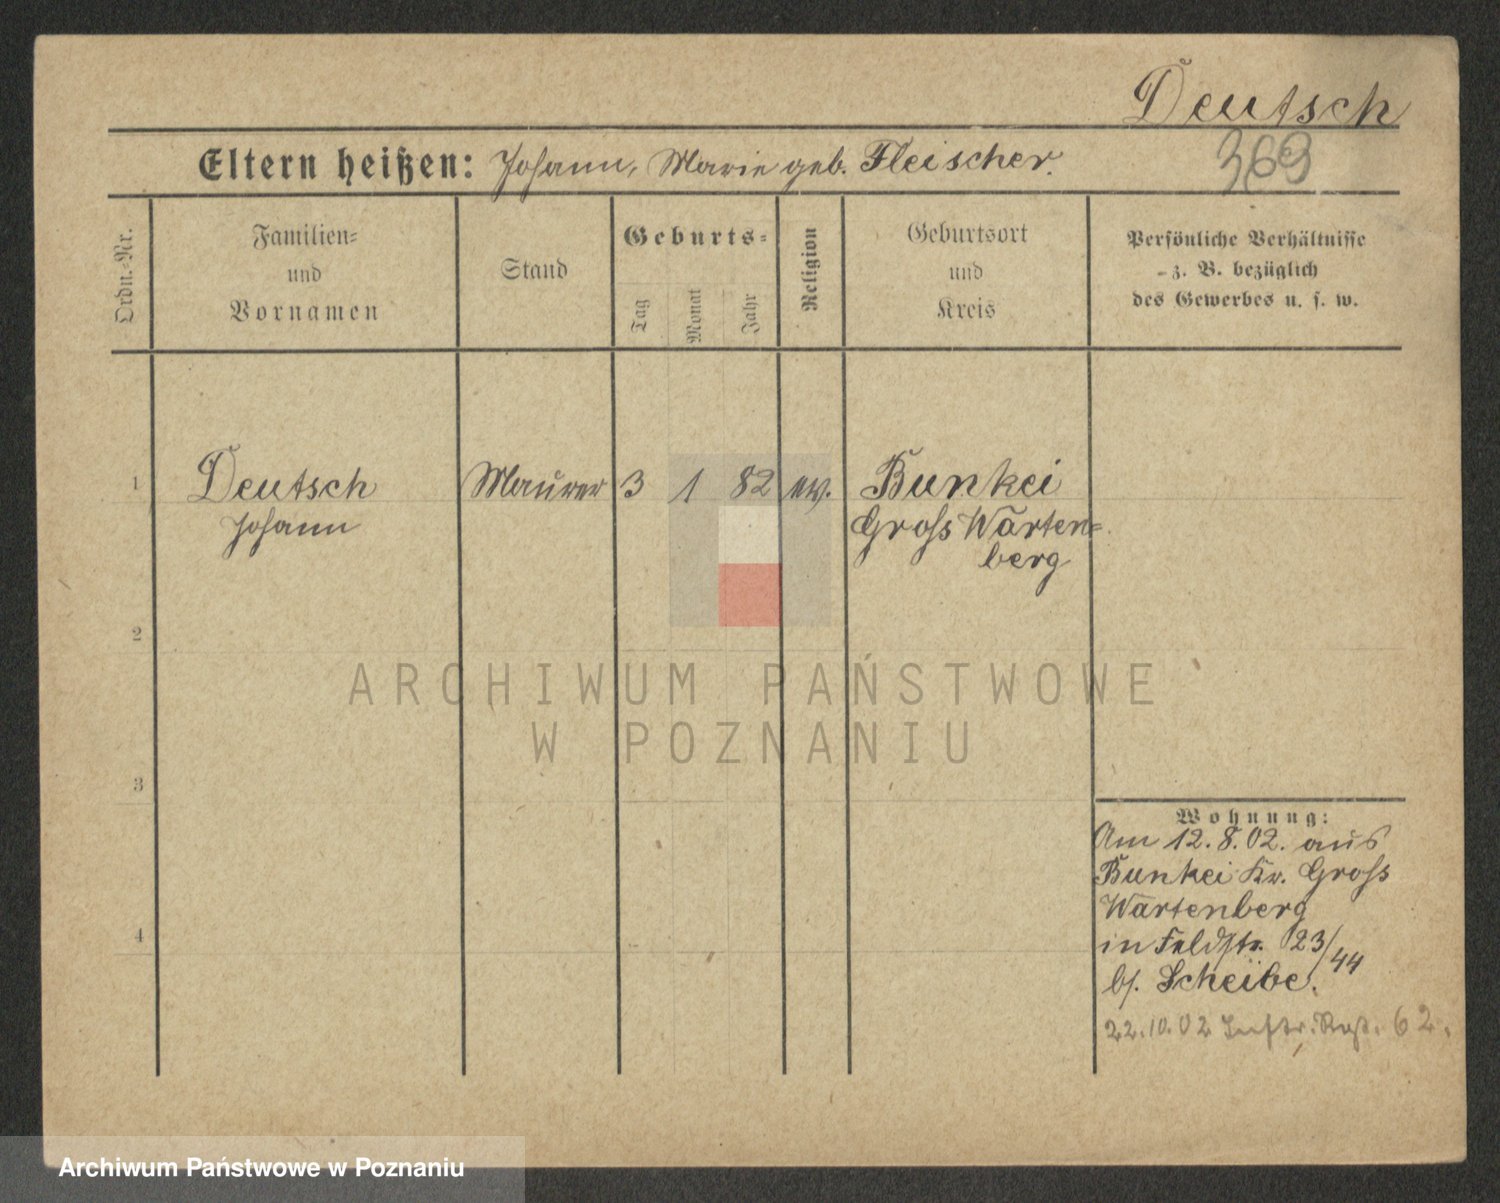 Deutsch
369
Eltern heißen: Johann, Marie geb. Fleischer.
Ordn.-Nr.
Familien-
und
Vornamen
Stand
Geburts-
Tag
Monat
Jahr
Religion
Geburtsort
und
Kreis
Persönliche Verhältnisse
z. B. bezüglich
des Gewerbes u. s. w.
1
Deutsch
Johann
Maurer
3 1 82
ev.
Bunkei
Gross Warten-
berg
2
ARCHIWUM PAŃSTWOWE
W POZNANIU
3
4
Wohnung:
Am 12.8.02. aus
Bunkei Kr. Gross
Wartenberg
in Feldstr. 23/44
b/. Scheibe.
22.10.02 Inftr. Rgt. 62.
Archiwum Państwowe w Poznaniu